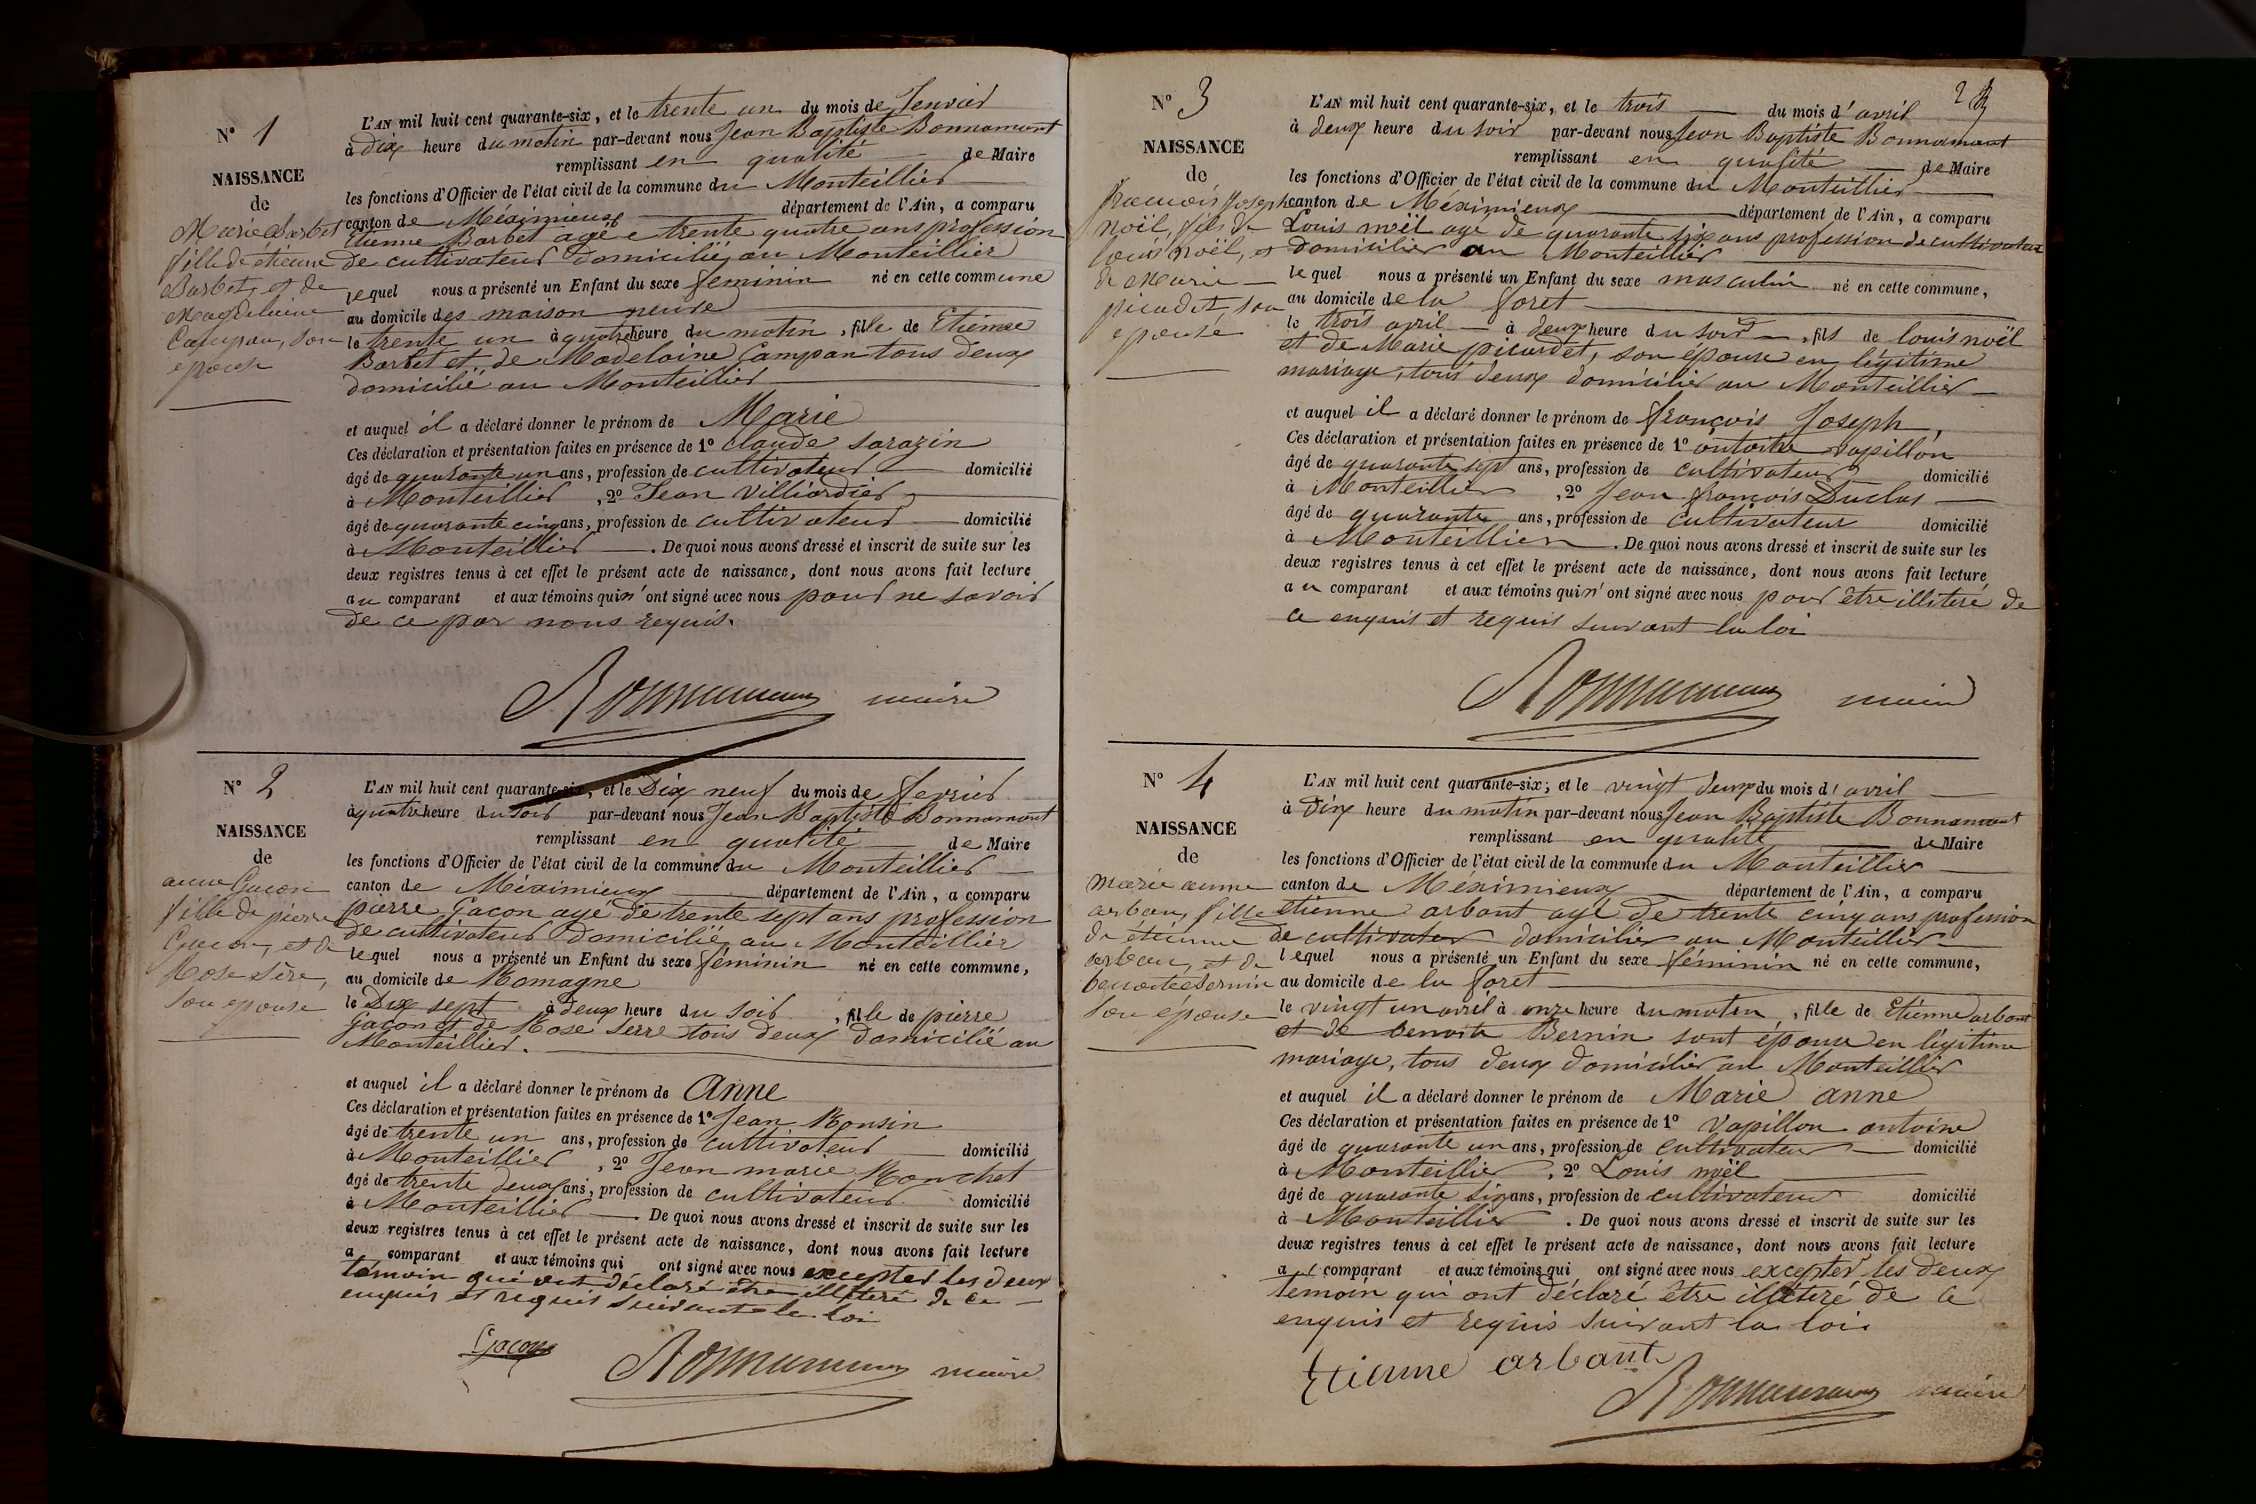 N° 1
NAISSANCE
de
Marie Barbet
fille de étienne
Barbet, et de
Magdeleine
Campan, son
epouse
L'AN mil huit cent quarante-six, et le trente un du mois de Jenvier
à dix heure du matin par-devant nous Jean Baptiste Bonnamant
remplissant en qualité de Maire
les fonctions d'Officier de l'état civil de la commune du Monteillier
canton de Méximieux département de l'Ain, a comparu
Etienne Barbet agé e trente quatre ans profession
de cultivateur domicilié au Monteillier
lequel nous a présenté un Enfant du sexe feminin né en cette commune
au domicile des maison neuve
le trente un à quatre heure du matin, fille de Etienne
Barbet et de Madelaine Campan tous deux
domicilié au Monteillier
et auquel il a déclaré donner le prénom de Marie
Ces déclaration et présentation faites en présence de 1° claude sarazin
âgé de quarante un ans, profession de cultivateur domicilié
à Monteillier, 2° Jean Villiardier
âgé de quarante cinq ans, profession de cultivateur domicilié
à Monteillier. De quoi nous avons dressé et inscrit de suite sur les
deux registres tenus à cet effet le présent acte de naissance, dont nous avons fait lecture
au comparant et aux témoins qui n'ont signé avec nous pour ne savoir
de ce par nous requis.
Bonnamant maire
N° 2
NAISSANCE
de
anne Gacon
fille de pierre
Gacon, et de
Rose Sère,
son epouse
L'AN mil huit cent quarante-six, et le Dix neuf du mois de fevrier
à quatre heure du soir par-devant nous Jean Baptiste Bonnamant
remplissant en qualité de Maire
les fonctions d'Officier de l'état civil de la commune du Monteillier
canton de Méximieux département de l'Ain, a comparu
pierre Gacon agé de trente sept ans profession
de cultivateur domicilié au Monteillier
lequel nous a présenté un Enfant du sexe féminin né en cette commune,
au domicile de Romagne
le Dix sept à deux heure du soir, fille de pierre
Gacon et de Rose Serre tous deux domicilié au
Monteillier.
et auquel il a déclaré donner le prénom de Anne
Ces déclaration et présentation faites en présence de 1° Jean Ronsin
âgé de trente un ans, profession de cultivateur domicilié
à Monteillier, 2° Jean marie Monchet
âgé de trente deux ans, profession de cultivateur domicilié
à Monteillier. De quoi nous avons dressé et inscrit de suite sur les
deux registres tenus à cet effet le présent acte de naissance, dont nous avons fait lecture
a comparant et aux témoins qui ont signé avec nous excepter les deux
témoin qui ont déclaré être illiteré de ce
enquis et requis suivant le loi
Gacon
Bonnamant maire
N° 3
NAISSANCE
de
francois Joseph
noël, fils de
louis noël, et
de Marie
picadet, son
epouse
2
L'AN mil huit cent quarante-six, et le trois du mois d'avril
à deux heure du soir par-devant nous Jean Baptiste Bonnamant
remplissant en qualité de Maire
les fonctions d'Officier de l'état civil de la commune du Monteillier
canton de Méximieux département de l'Ain, a comparu
Louis noël age de quarante six ans profession de cultivateur
domicilier au Monteillier
lequel nous a présenté un Enfant du sexe masculin né en cette commune,
au domicile de la foret
le trois avril à deux heure du soir, fils de louis noël
et de Marie picardet, son épouse en légitime
mariage, tous deux domicilier au Monteillier
et auquel il a déclaré donner le prénom de françois Joseph,
Ces déclaration et présentation faites en présence de 1° antoine vapillon
âgé de quarante sept ans, profession de cultivateur domicilié
à Monteillier, 2° Jean françois Duclas
âgé de quarante ans, profession de cultivateur domicilié
à Monteillier. De quoi nous avons dressé et inscrit de suite sur les
deux registres tenus à cet effet le présent acte de naissance, dont nous avons fait lecture
au comparant et aux témoins qui n'ont signé avec nous pour être illiteré de
ce enquis et requis suivant la loi
Bonnamant maire
N° 4
NAISSANCE
de
marie anne
arban, fille
de étienne
arban, et de
benoite Bernin
son épouse
L'AN mil huit cent quarante-six; et le vingt deux du mois d'avril
à dix heure du matin par-devant nous Jean Baptiste Bonnamant
remplissant en qualité de Maire
les fonctions d'Officier de l'état civil de la commune du Monteillier
canton de Méximieux département de l'Ain, a comparu
etienne arbant agé de trente cinq ans profession
de cultivater domicilier au Monteillier
lequel nous a présenté un Enfant du sexe féminin né en cette commune,
au domicile de la foret
le vingt un avril à onze heure du matin, fille de Etienne arbant
et de benoite Bernin sont épouse en légitime
mariage, tous deux domicilier au Monteillier
et auquel il a déclaré donner le prénom de Marie anne
Ces déclaration et présentation faites en présence de 1° Vapillon antoine
âgé de quarante un ans, profession de cultivateur domicilié
à Monteillier, 2° Louis noël
âgé de quarante six ans, profession de cultivateur domicilié
à Monteillier. De quoi nous avons dressé et inscrit de suite sur les
deux registres tenus à cet effet le présent acte de naissance, dont nous avons fait lecture
au comparant et aux témoins qui ont signé avec nous excepter les deux
témoin qui ont déclaré être illiteré de ce
enquis et requis suivant la loi
Etienne arbant
Bonnamant maire